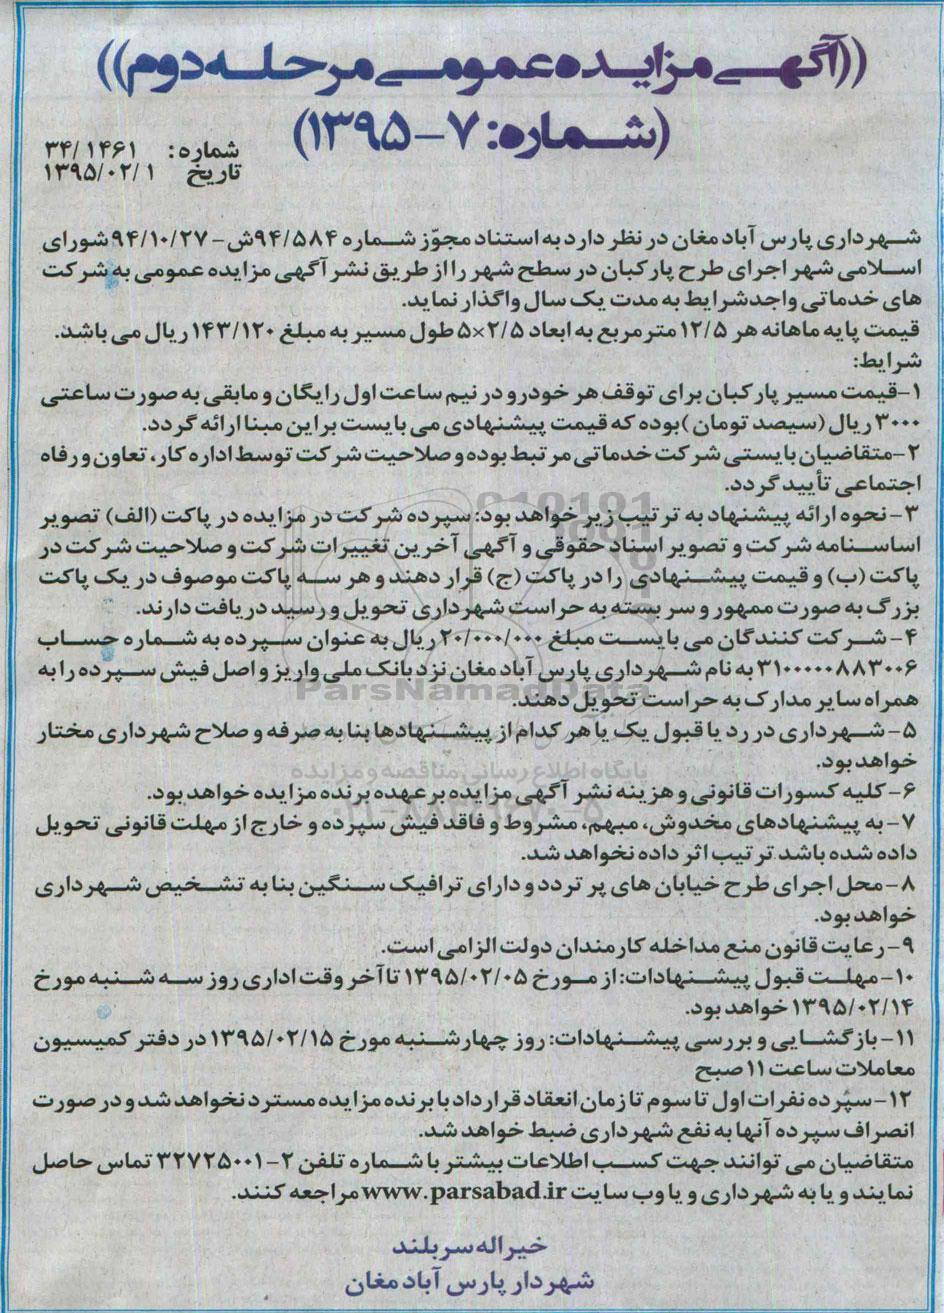 ((آگهی مزایده عمومی مرحله دوم))
(شماره: ۷-۱۳۹۵)
شماره: ۳۴/۱۴۶۱
تاریخ ۱۳۹۵/۰۲/۱
شهرداری پارس آباد مغان در نظر دارد به استناد مجوّز شماره ۹۴/۵۸۴ش-۹۴/۱۰/۲۷ شورای
اسلامی شهر اجرای طرح پارکبان در سطح شهر را از طریق نشر آگهی مزایده عمومی به شرکت
های خدماتی واجد شرایط به مدت یک سال واگذار نماید.
قیمت پایه ماهانه هر ۱۲/۵ متر مربع به ابعاد ۲/۵×۵ طول مسیر به مبلغ ۱۴۳/۱۲۰ ریال می باشد.
شرایط:
۱-قیمت مسیر پارکبان برای توقف هر خودرو در نیم ساعت اول رایگان و مابقی به صورت ساعتی
۳۰۰۰ ریال (سیصد تومان) بوده که قیمت پیشنهادی می بایست بر این مبنا ارائه گردد.
۲-متقاضیان بایستی شرکت خدماتی مرتبط بوده و صلاحیت شرکت توسط اداره کار، تعاون و رفاه
اجتماعی تأیید گردد.
۳-نحوه ارائه پیشنهاد به ترتیب زیر خواهد بود: سپرده شرکت در مزایده در پاکت (الف) تصویر
اساسنامه شرکت و تصویر اسناد حقوقی و آگهی آخرین تغییرات شرکت و صلاحیت شرکت در
پاکت (ب) و قیمت پیشنهادی را در پاکت (ج) قرار دهند و هر سه پاکت موصوف در یک پاکت
بزرگ به صورت ممهور و سر بسته به حراست شهرداری تحویل و رسید دریافت دارند.
۴-شرکت کنندگان می بایست مبلغ ۲۰/۰۰۰/۰۰۰ ریال به عنوان سپرده به شماره حساب
۳۱۰۰۰۰۰۸۸۳۰۰۶ به نام شهرداری پارس آباد مغان نزد بانک ملی واریز و اصل فیش سپرده را به
همراه سایر مدارک به حراست تحویل دهند.
۵-شهرداری در رد یا قبول یک یا هر کدام از پیشنهادها بنا به صرفه و صلاح شهرداری مختار
خواهد بود.
۶-کلیه کسورات قانونی و هزینه نشر آگهی مزایده بر عهده برنده مزایده خواهد بود.
۷-به پیشنهادهای مخدوش، مبهم، مشروط و فاقد فیش سپرده و خارج از مهلت قانونی تحویل
داده شده باشد ترتیب اثر داده نخواهد شد.
۸-محل اجرای طرح خیابان های پر تردد و دارای ترافیک سنگین بنا به تشخیص شهرداری
خواهد بود.
۹-رعایت قانون منع مداخله کارمندان دولت الزامی است.
۱۰-مهلت قبول پیشنهادات: از مورخ ۱۳۹۵/۰۲/۰۵ تا آخر وقت اداری روز سه شنبه مورخ
۱۳۹۵/۰۲/۱۴ خواهد بود.
۱۱-بازگشایی و بررسی پیشنهادات: روز چهارشنبه مورخ ۱۳۹۵/۰۲/۱۵ در دفتر کمیسیون
معاملات ساعت ۱۱ صبح
۱۲-سپرده نفرات اول تا سوم تا زمان انعقاد قرارداد با برنده مزایده مسترد نخواهد شد و در صورت
انصراف سپرده آنها به نفع شهرداری ضبط خواهد شد.
متقاضیان می توانند جهت کسب اطلاعات بیشتر با شماره تلفن ۲-۳۲۷۲۵۰۰۱ تماس حاصل
نمایند و یا به شهرداری و یا وب سایت www.parsabad.ir مراجعه کنند.
خیراله سربلند
شهردار پارس آباد مغان
ParsNamadData
پایگاه اطلاع رسانی مناقصه و مزایده